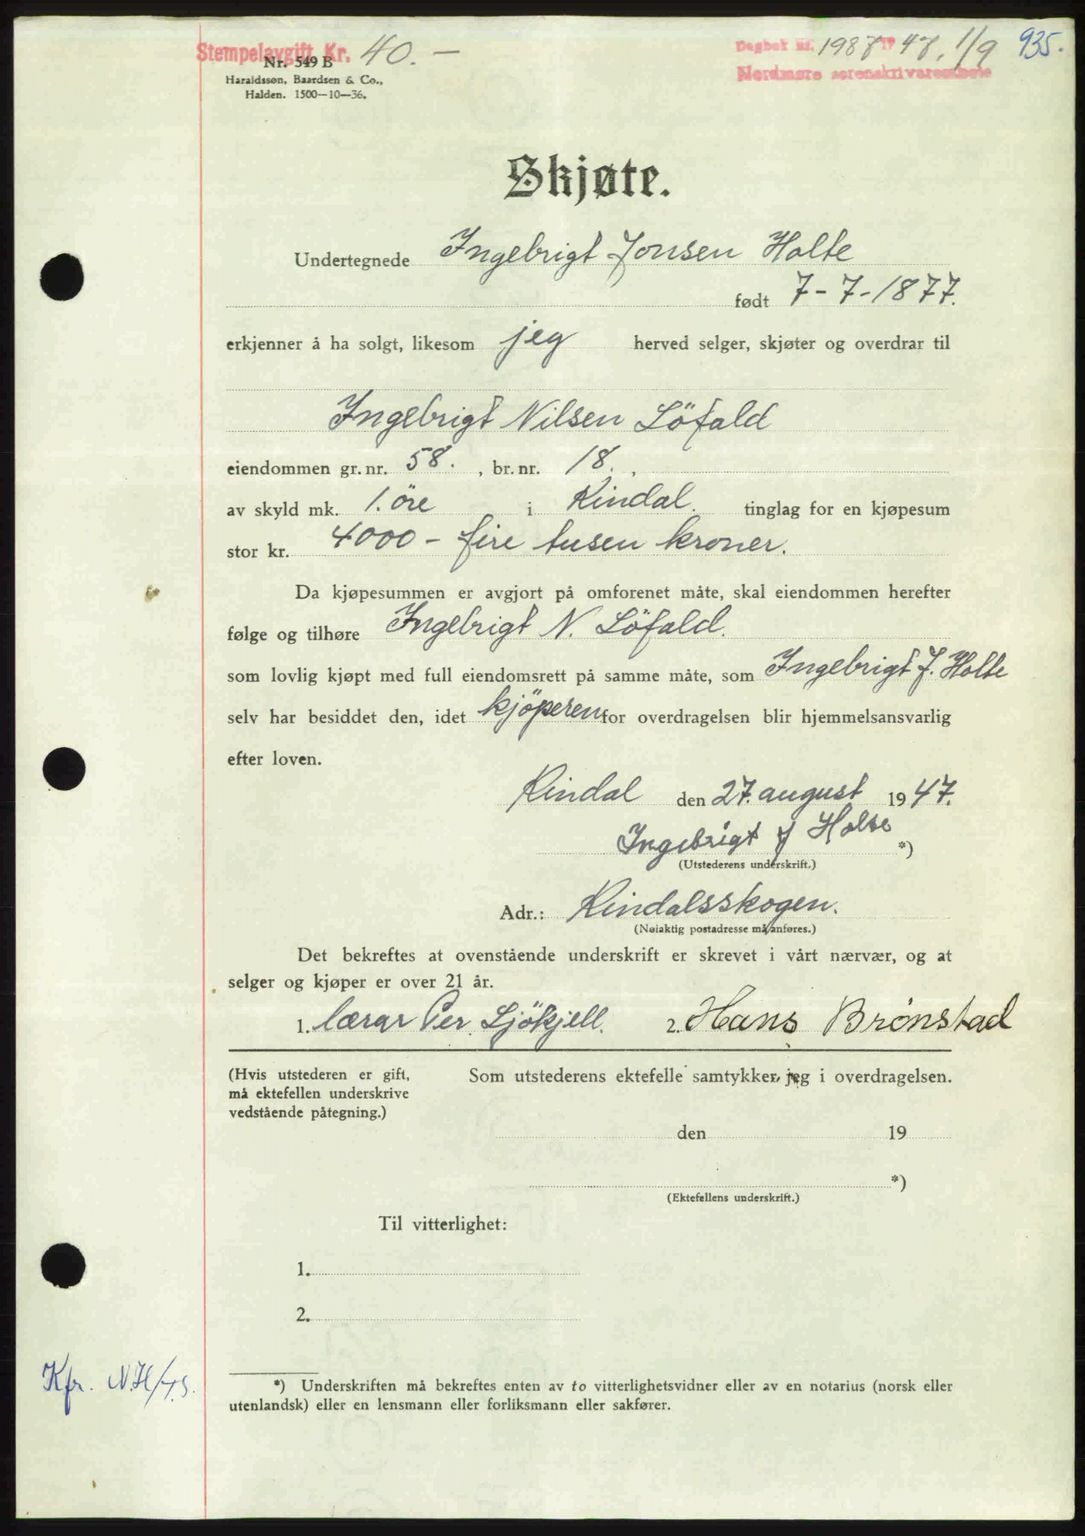 Stempelavgift Kr. 40.—
Nr. 549 B
Haraldsson, Baardsen & Co.,
Halden. 1500—10—36.
Dagbok nr. 1987 19 47. 1/9 935.
Nordmøre sorenskrivarembete
Skjøte.
Undertegnede Ingebrigt Jonsen Holte
født 7-7-1877.
erkjenner å ha solgt, likesom jeg herved selger, skjøter og overdrar til
Ingebrigt Nilsen Löfald
eiendommen gr. nr. 58. , br. nr. 18. ,
av skyld mk. 1. öre i Rindal. tinglag for en kjøpesum
stor kr. 4000 - fire tusen kroner.
Da kjøpesummen er avgjort på omforenet måte, skal eiendommen herefter
følge og tilhøre Ingebrigt N. Löfald.
som lovlig kjøpt med full eiendomsrett på samme måte, som Ingebrigt J. Holte
selv har besiddet den, idet kjöperen for overdragelsen blir hjemmelsansvarlig
efter loven.
Rindal den 27. august 1947.
Ingebrigt J Holte *)
(Utstederens underskrift.)
Adr.: Rindalsskogen.
(Nøiaktig postadresse må anføres.)
Det bekreftes at ovenstående underskrift er skrevet i vårt nærvær, og at
selger og kjøper er over 21 år.
1. lærar Per Ljökjell. 2. Hans Brønstad
(Hvis utstederen er gift, Som utstederens ektefelle samtykker jeg i overdragelsen.
må ektefellen underskrive
vedstående påtegning.)
den 19
*)
(Ektefellens underskrift.)
Til vitterlighet:
1.
2.
Kfr. N.H/43.
*) Underskriften må bekreftes enten av to vitterlighetsvidner eller av en notarius (norsk eller
utenlandsk) eller en lensmann eller forliksmann eller sakfører.